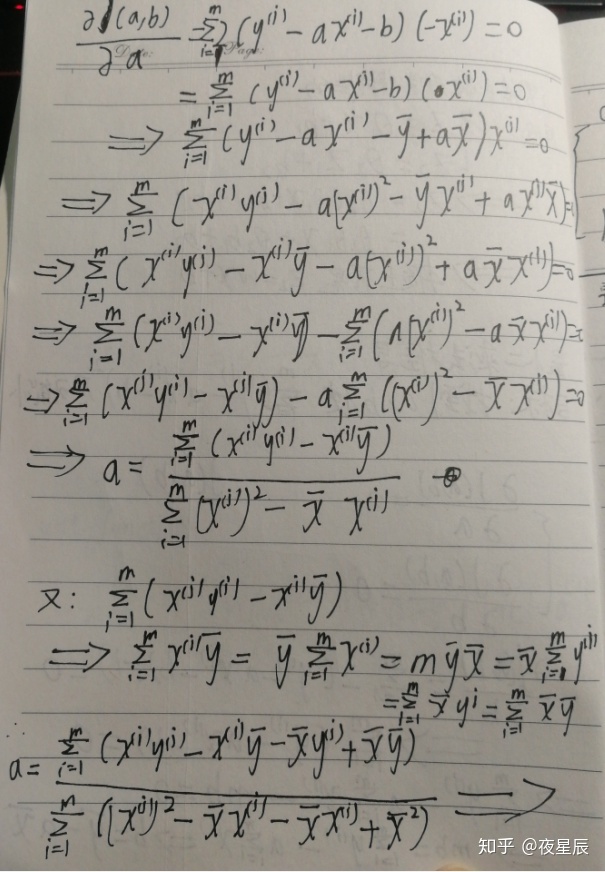 ∂J(a,b)/∂a = Σ_{i=1}^{m} (y^{(i)} − ax^{(i)} − b)(−x^{(i)}) = 0
Date: Page:
= Σ_{i=1}^{m} (y^{(i)} − ax^{(i)} − b)(x^{(i)}) = 0
⟹ Σ_{i=1}^{m} (y^{(i)} − ax^{(i)} − ȳ + ax̄)x^{(i)} = 0
⟹ Σ_{i=1}^{m} (x^{(i)}y^{(i)} − a(x^{(i)})² − ȳx^{(i)} + ax^{(i)}x̄) =
⟹ Σ_{i=1}^{m} (x^{(i)}y^{(i)} − x^{(i)}ȳ − a(x^{(i)})² + ax̄x^{(i)}) = 0
⟹ Σ_{i=1}^{m} (x^{(i)}y^{(i)} − x^{(i)}ȳ) − Σ_{i=1}^{m} (a(x^{(i)})² − ax̄x^{(i)}) =
⟹ Σ_{i=1}^{m} (x^{(i)}y^{(i)} − x^{(i)}ȳ) − a Σ_{i=1}^{m} ((x^{(i)})² − x̄x^{(i)}) = 0
⟹ a = Σ_{i=1}^{m} (x^{(i)}y^{(i)} − x^{(i)}ȳ) / Σ_{i=1}^{m} (x^{(i)})² − x̄ x^{(i)}
又: Σ_{i=1}^{m} (x^{(i)}y^{(i)} − x^{(i)}ȳ)
⟹ Σ_{i=1}^{m} x^{(i)}ȳ = ȳ Σ_{i=1}^{m} x^{(i)} = mȳx̄ = x̄ Σ_{i=1}^{m} y^{(i)}
= Σ_{i=1}^{m} x̄y^{i} = Σ_{i=1}^{m} x̄ȳ
∴ a = Σ_{i=1}^{m} (x^{(i)}y^{(i)} − x^{(i)}ȳ − x̄y^{(i)} + x̄ȳ) / Σ_{i=1}^{m} ((x^{(i)})² − x̄x^{(i)} − x̄x^{(i)} + x̄²) ⟹
知乎 @夜星辰